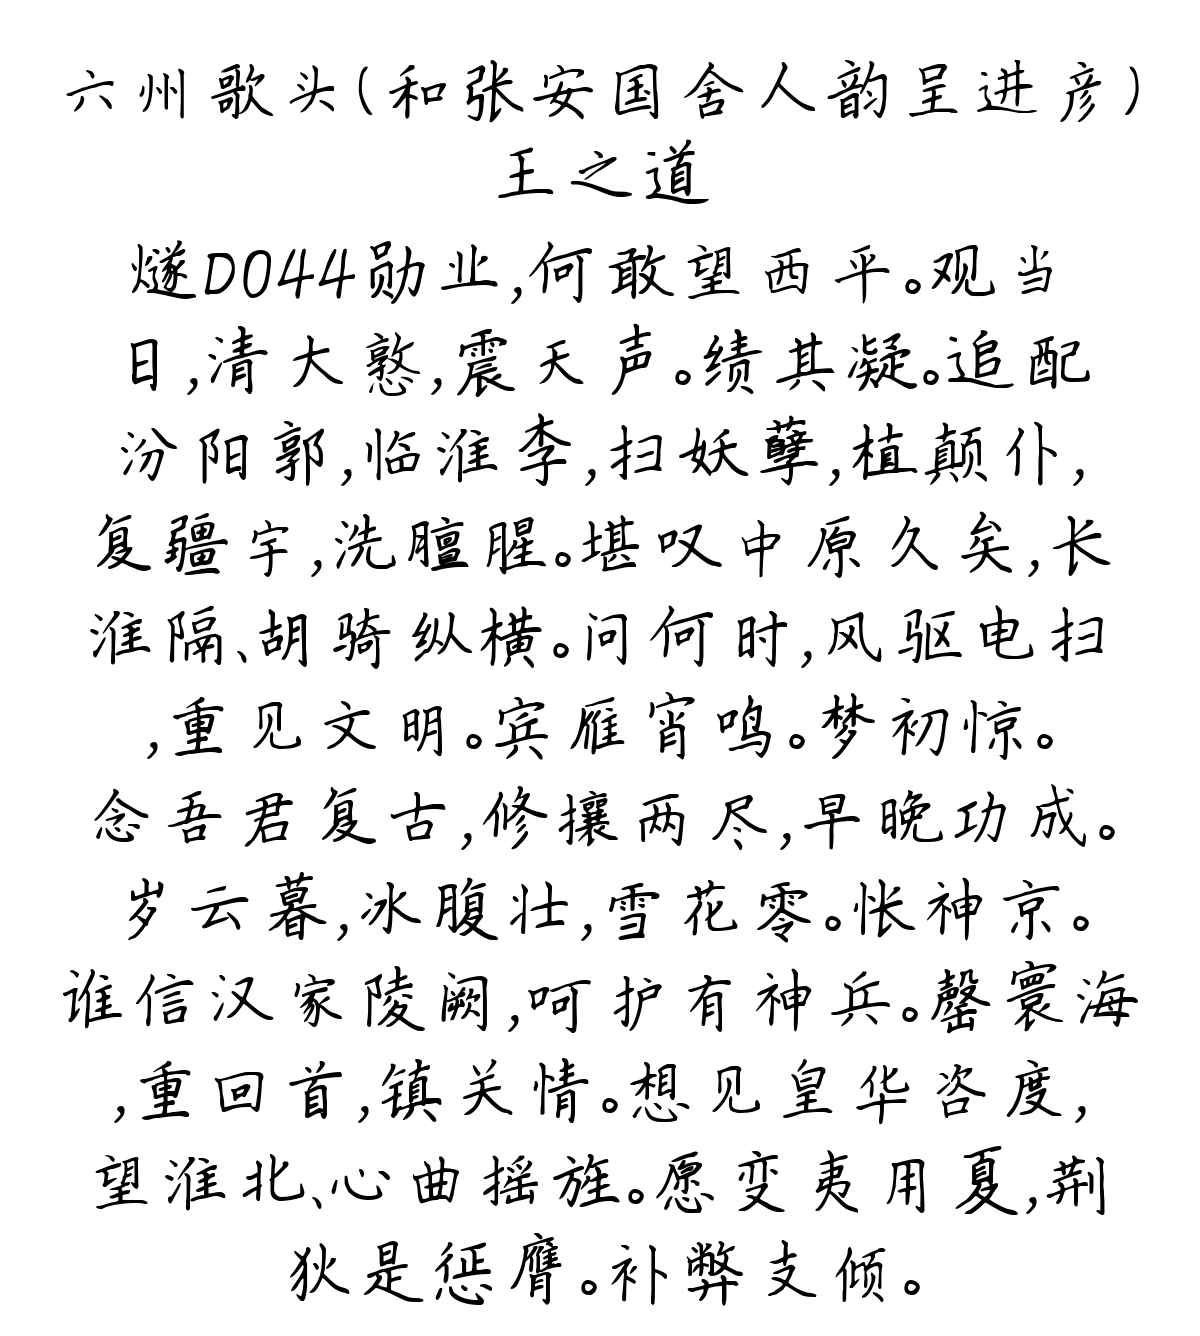 六州歌头(和张安国舍人韵呈进彦)
王之道
燧D044勋业,何敢望西平。观当
日,清大憝,震天声。绩其凝。追配
汾阳郭,临淮李,扫妖孽,植颠仆,
复疆宇,洗膻腥。堪叹中原久矣,长
淮隔、胡骑纵横。问何时,风驱电扫
,重见文明。宾雁宵鸣。梦初惊。
念吾君复古,修攘两尽,早晚功成。
岁云暮,冰腹壮,雪花零。怅神京。
谁信汉家陵阙,呵护有神兵。罄寰海
,重回首,镇关情。想见皇华咨度,
望淮北、心曲摇旌。愿变夷用夏,荆
狄是惩膺。补弊支倾。